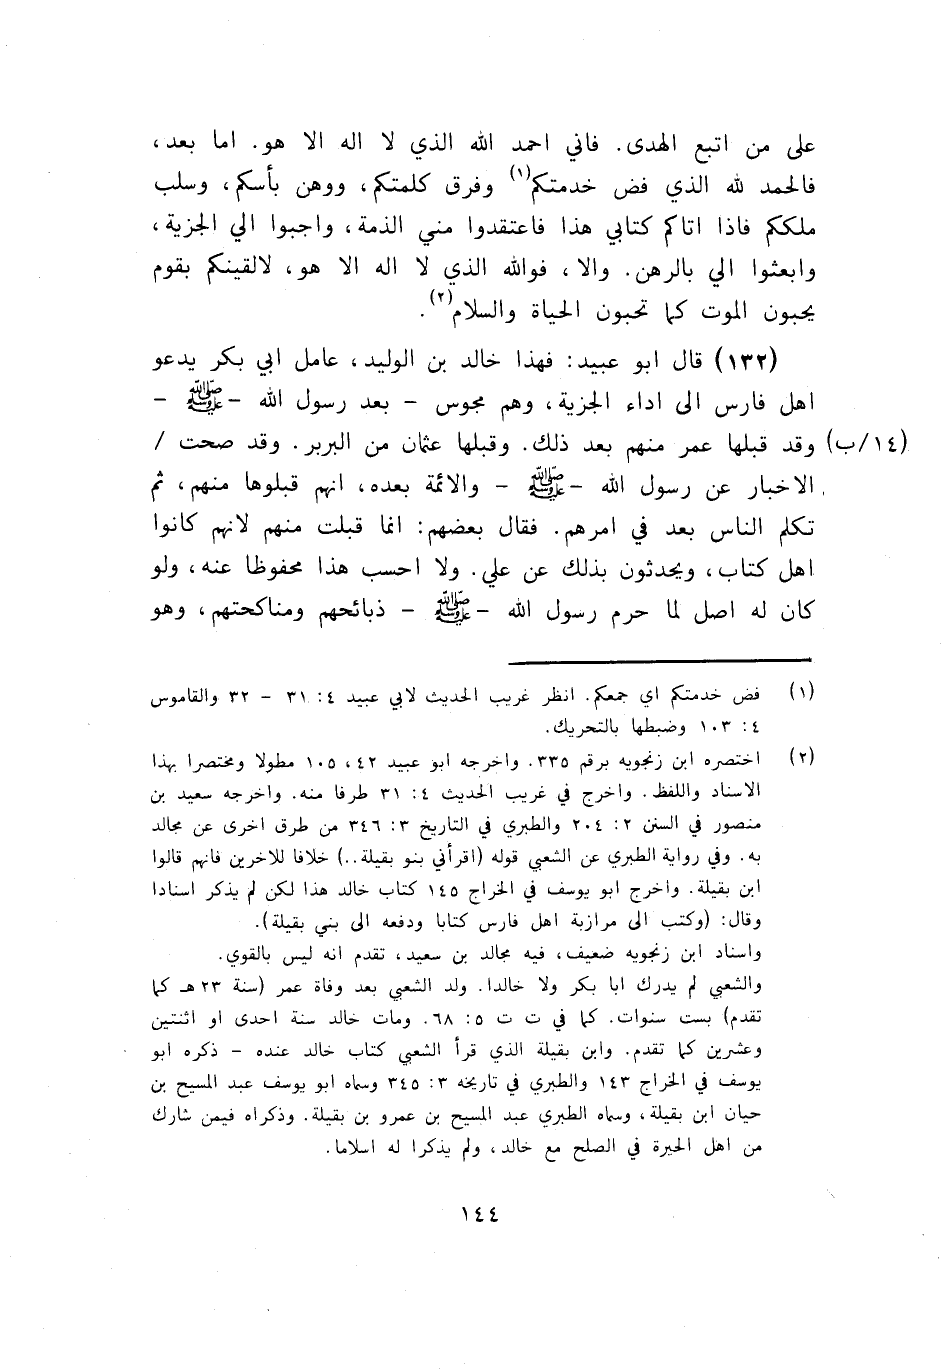 على من اتبع الهدى. فاني احمد الله الذي لا اله الا هو. اما بعد،
فالحمد لله الذي فض خدمتكم(١) وفرق كلمتكم، ووهن بأسكم، وسلب
ملككم فاذا اتاكم كتابي هذا فاعتقدوا مني الذمة، واجبوا الي الجزية،
وابعثوا الي بالرهن. والا، فوالله الذي لا اله الا هو، لالقينكم بقوم
يحبون الموت كما تحبون الحياة والسلام(٢).
(١٣٢) قال ابو عبيد: فهذا خالد بن الوليد، عامل ابي بكر يدعو
اهل فارس الى اداء الجزية، وهم مجوس - بعد رسول الله - ﷺ -
(١٤/ب) وقد قبلها عمر منهم بعد ذلك. وقبلها عثمان من البربر. وقد صحت /
الاخبار عن رسول الله - ﷺ - والائمة بعده، انهم قبلوها منهم، ثم
تكلم الناس بعد في امرهم. فقال بعضهم: انما قبلت منهم لانهم كانوا
اهل كتاب، ويحدثون بذلك عن علي. ولا احسب هذا محفوظا عنه، ولو
كان له اصل لما حرم رسول الله - ﷺ - ذبائحهم ومناكحتهم، وهو
(١) فض خدمتكم اي جمعكم. انظر غريب الحديث لابي عبيد ٤: ٣١ - ٣٢ والقاموس
٤: ١٠٣ وضبطها بالتحريك.
(٢) اختصره ابن زنجويه برقم ٣٣٥. واخرجه ابو عبيد ٤٢، ١٠٥ مطولا ومختصرا بهذا
الاسناد واللفظ. واخرج في غريب الحديث ٤: ٣١ طرفا منه. واخرجه سعيد بن
منصور في السنن ٢: ٢٠٤ والطبري في التاريخ ٣: ٣٤٦ من طرق اخرى عن مجالد
به. وفي رواية الطبري عن الشعبي قوله (اقرأني بنو بقيلة..) خلافا للاخرين فانهم قالوا
ابن بقيلة. واخرج ابو يوسف في الخراج ١٤٥ كتاب خالد هذا لكن لم يذكر اسنادا
وقال: (وكتب الى مرازبة اهل فارس كتابا ودفعه الى بني بقيلة).
واسناد ابن زنجويه ضعيف، فيه مجالد بن سعيد، تقدم انه ليس بالقوي.
والشعبي لم يدرك ابا بكر ولا خالدا. ولد الشعبي بعد وفاة عمر (سنة ٢٣ هـ كما
تقدم) بست سنوات. كما في ت ت ٥: ٦٨. ومات خالد سنة احدى او اثنتين
وعشرين كما تقدم. وابن بقيلة الذي قرأ الشعبي كتاب خالد عنده - ذكره ابو
يوسف في الخراج ١٤٣ والطبري في تاريخه ٣: ٣٤٥ وسماه ابو يوسف عبد المسيح بن
حيان ابن بقيلة، وسماه الطبري عبد المسيح بن عمرو بن بقيلة. وذكراه فيمن شارك
من اهل الحيرة في الصلح مع خالد، ولم يذكرا له اسلاما.
١٤٤